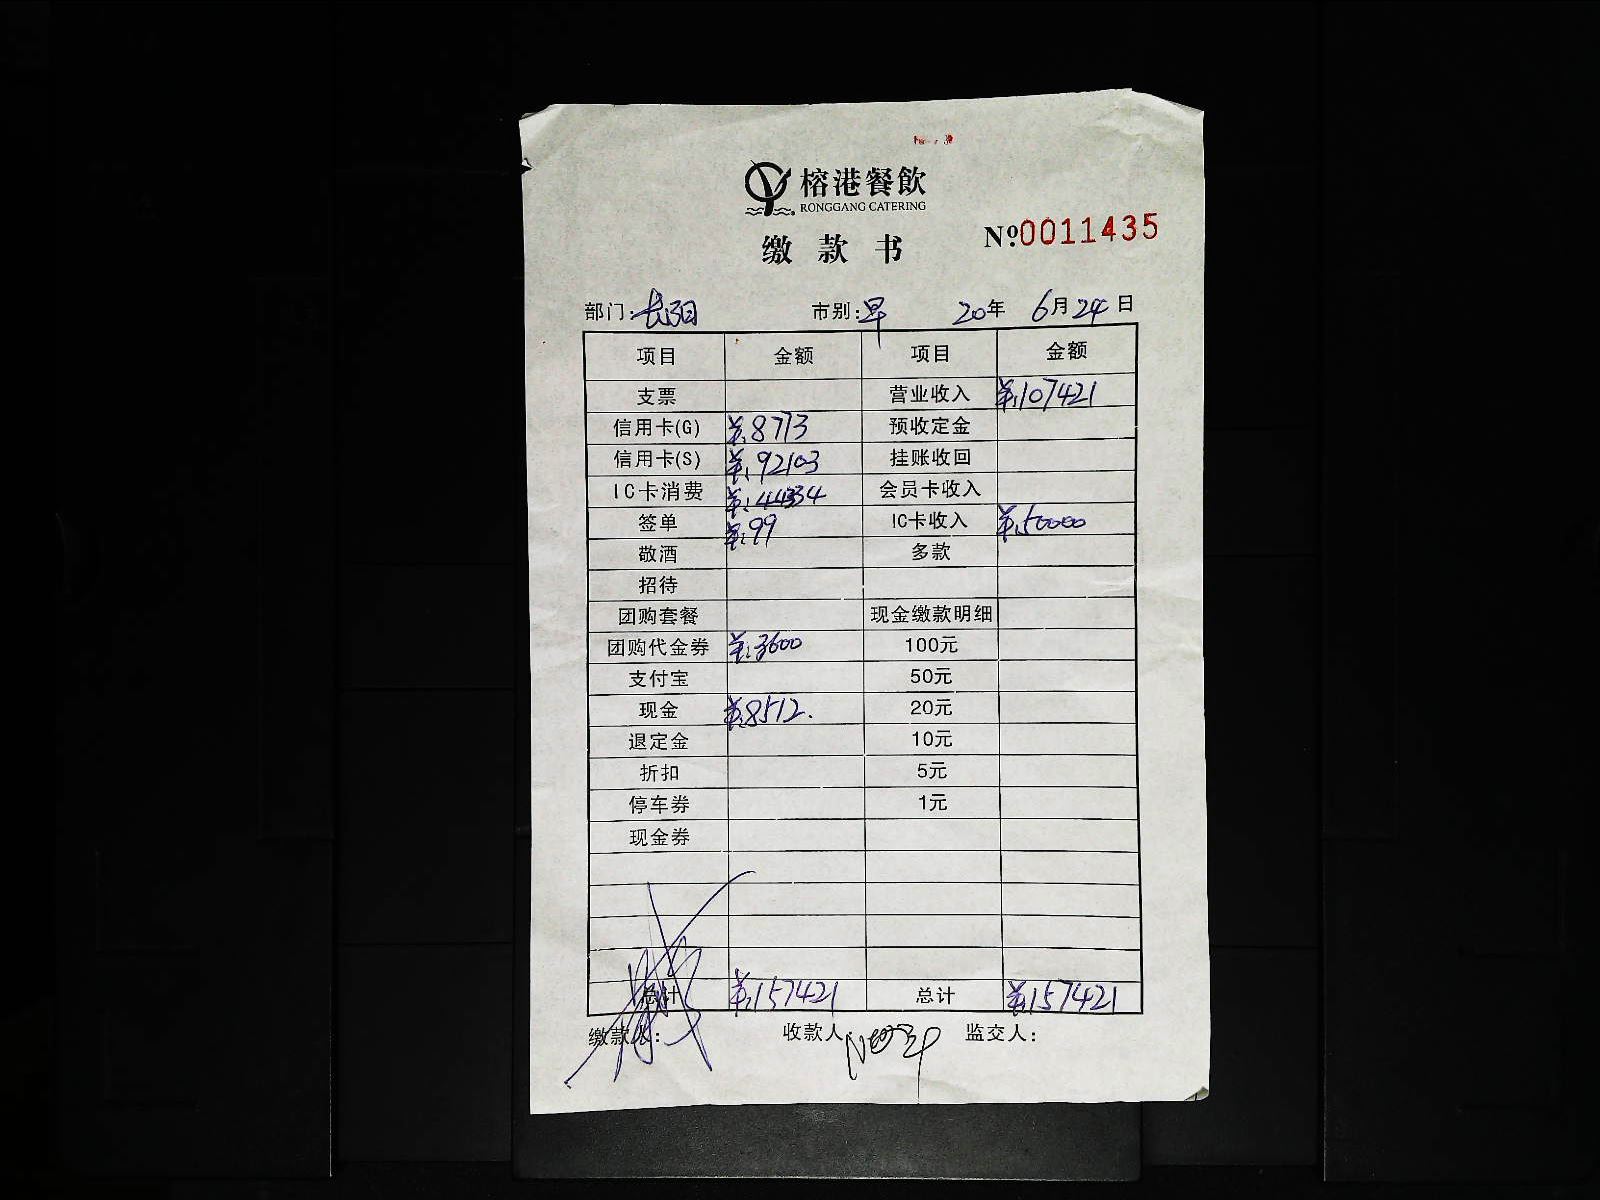 榕港餐飲
RONGGANG CATERING
缴款书 №0011435
部门:长阳 市别:早 20年 6月24日
项目 金额 项目 金额
支票 营业收入 ¥:107421
信用卡(G) ¥:8773 预收定金
信用卡(S) ¥:92103 挂账收回
IC卡消费 ¥:44334 会员卡收入
签单 ¥:99 IC卡收入 ¥:50000
敬酒 多款
招待
团购套餐 现金缴款明细
团购代金券 ¥:3600 100元
支付宝 50元
现金 ¥:8512. 20元
退定金 10元
折扣 5元
停车券 1元
现金券
总计 ¥:157421 总计 ¥:157421
缴款人: 收款人: 监交人: